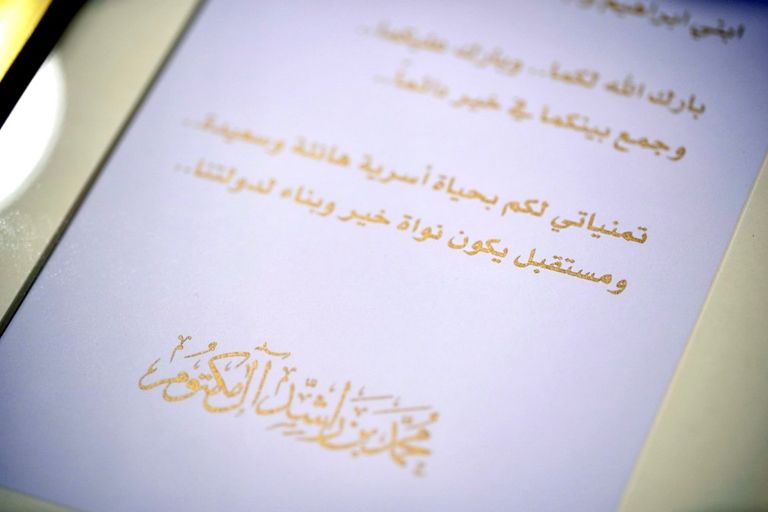 ابني ابراهيم
بارك الله لكما.. وبارك عليكما..
وجمع بينكما في خير دائماً..
تمنياتي لكم بحياة أسرية هانئة وسعيدة..
ومستقبل يكون نواة خير وبناء لدولتنا..
محمد بن راشد آل مكتوم